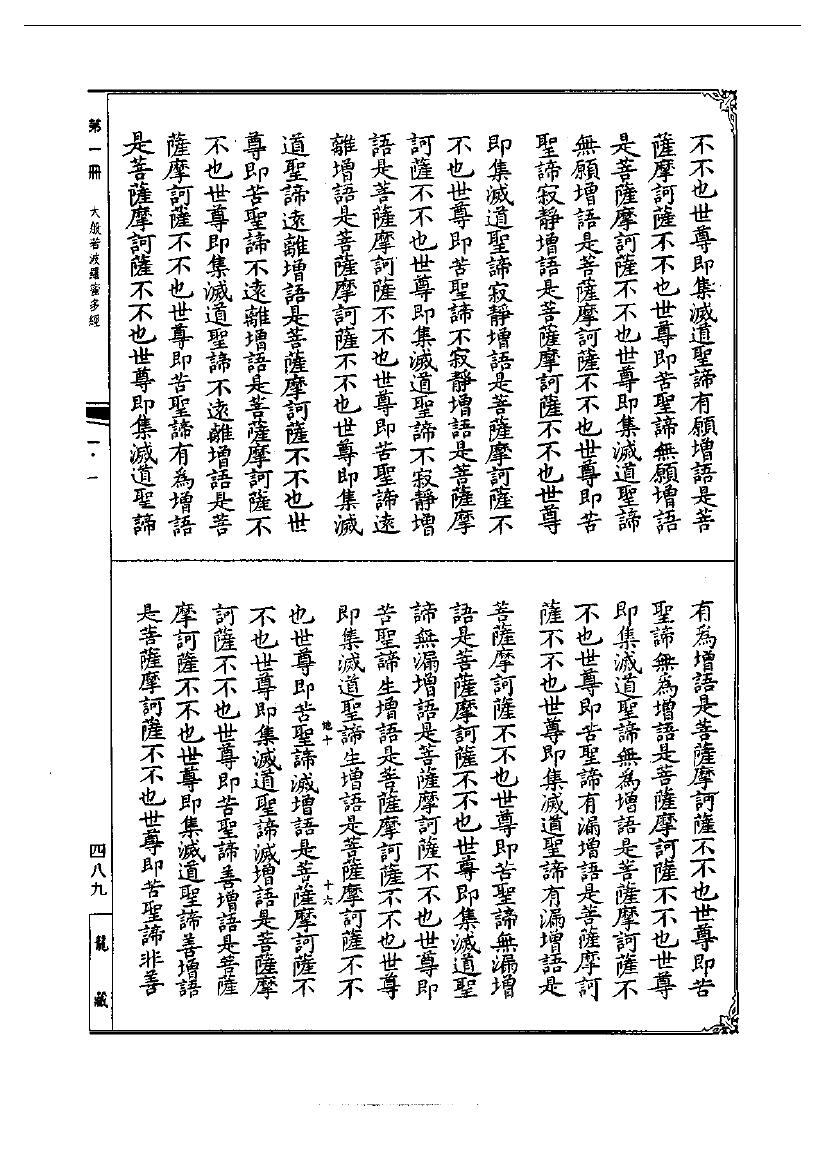 不不也世尊即集滅道聖諦有願增語是菩
薩摩訶薩不不也世尊即苦聖諦無願增語
是菩薩摩訶薩不不也世尊即集滅道聖諦
無願增語是菩薩摩訶薩不不也世尊即苦
聖諦寂靜增語是菩薩摩訶薩不不也世尊
即集滅道聖諦寂靜增語是菩薩摩訶薩不
不也世尊即苦聖諦不寂靜增語是菩薩摩
訶薩不不也世尊即集滅道聖諦不寂靜增
語是菩薩摩訶薩不不也世尊即苦聖諦遠
離增語是菩薩摩訶薩不不也世尊即集滅
道聖諦遠離增語是菩薩摩訶薩不不也世
尊即苦聖諦不遠離增語是菩薩摩訶薩不
不也世尊即集滅道聖諦不遠離增語是菩
薩摩訶薩不不也世尊即苦聖諦有為增語
是菩薩摩訶薩不不也世尊即集滅道聖諦
有為增語是菩薩摩訶薩不不也世尊即苦
聖諦無為增語是菩薩摩訶薩不不也世尊
即集滅道聖諦無為增語是菩薩摩訶薩不
不也世尊即苦聖諦有漏增語是菩薩摩訶
薩不不也世尊即集滅道聖諦有漏增語是
菩薩摩訶薩不不也世尊即苦聖諦無漏增
語是菩薩摩訶薩不不也世尊即集滅道聖
諦無漏增語是菩薩摩訶薩不不也世尊即
苦聖諦生增語是菩薩摩訶薩不不也世尊
即集滅道聖諦生增語是菩薩摩訶薩不不
地十 十六
也世尊即苦聖諦滅增語是菩薩摩訶薩不
不也世尊即集滅道聖諦滅增語是菩薩摩
訶薩不不也世尊即苦聖諦善增語是菩薩
摩訶薩不不也世尊即集滅道聖諦善增語
是菩薩摩訶薩不不也世尊即苦聖諦非善
第一冊 大般若波羅蜜多經
一·一
四八九
龍藏